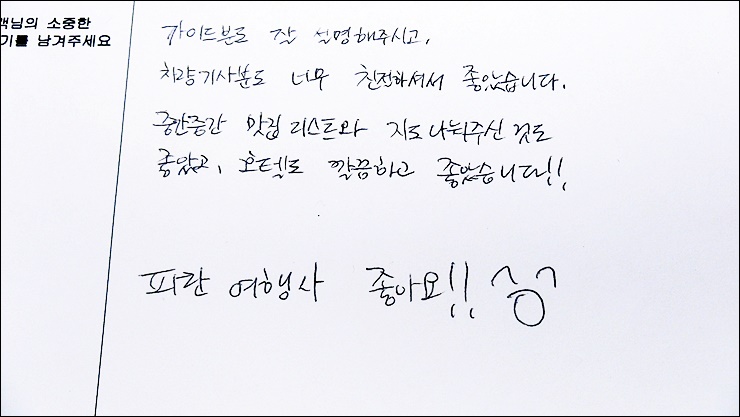 객님의 소중한
기를 남겨주세요
가이드분도 잘 설명해주시고,
차량기사분도 너무 친절하셔서 좋았습니다.
중간중간 맛집 리스트와 지도 나눠주신 것도
좋았고, 호텔도 깔끔하고 좋았습니다!!
파란 여행사 좋아요!!